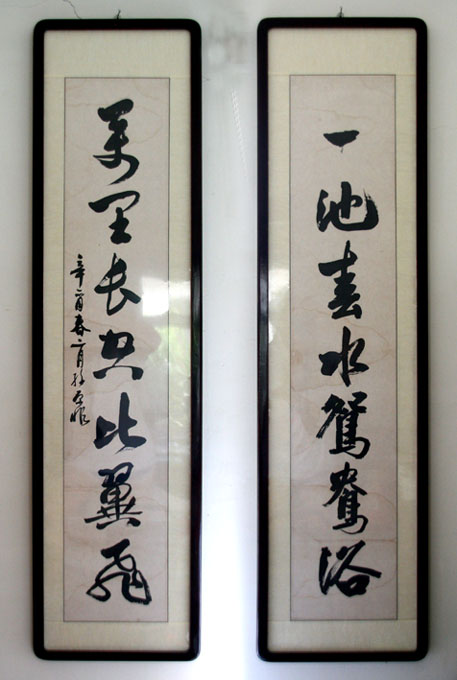 一池春水鴛鴦浴
萬里長空比翼飛
辛酉春二月